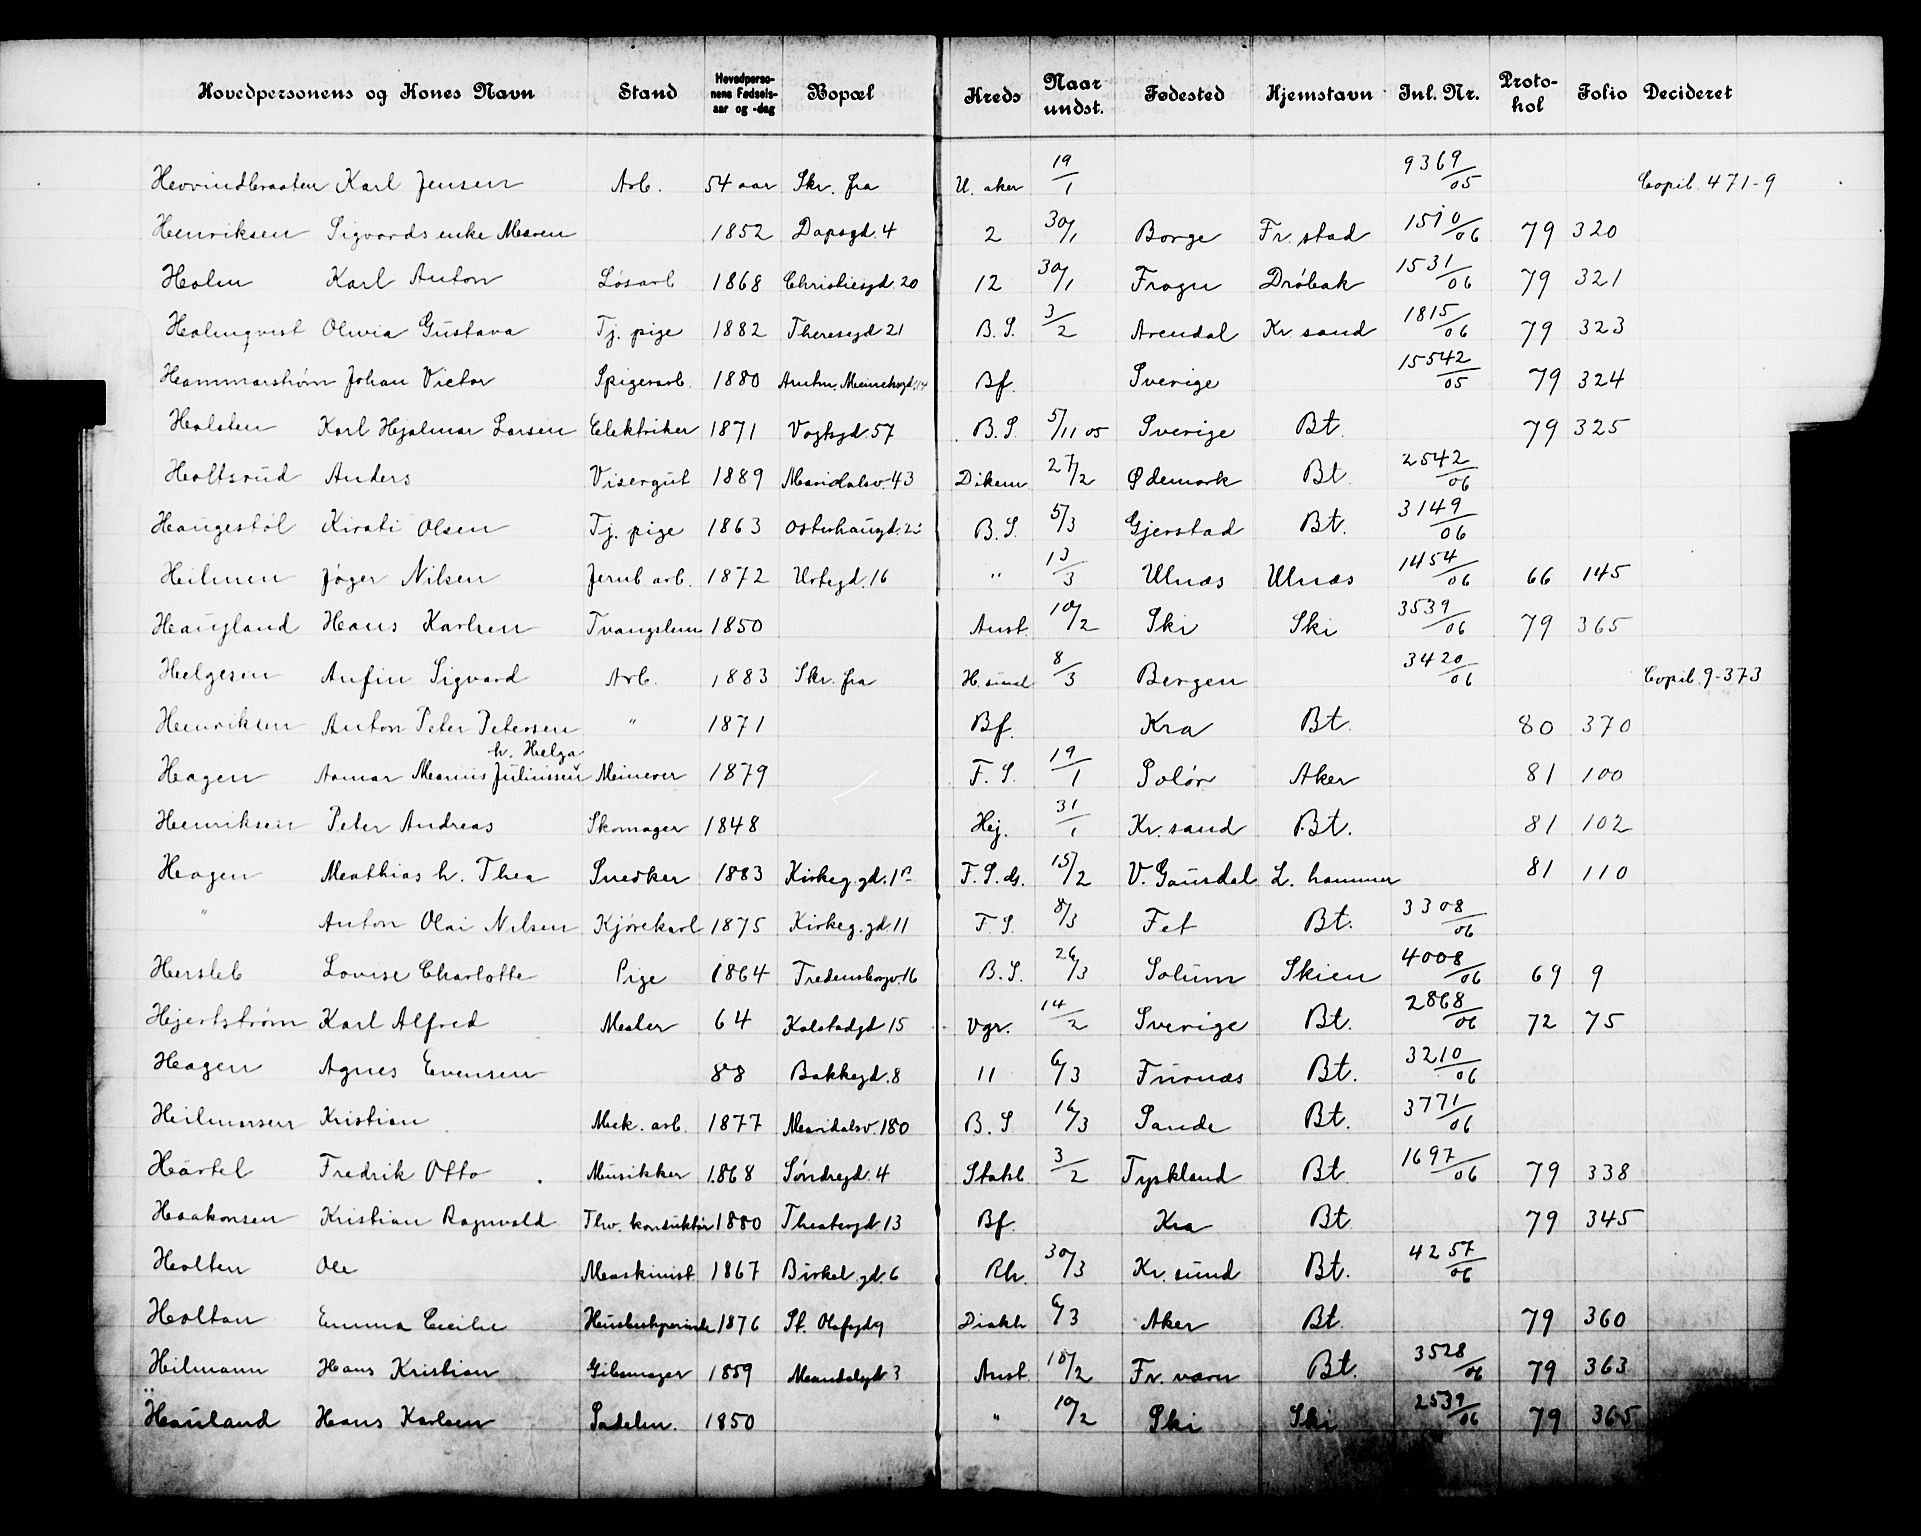 Hovedpersonens og Kones Navn Stand Hovedperso-nens Fødsels-aar og -dag Bopæl Kreds Naar undst. Fødested Hjemstavn Inl. Nr. Proto-kol Folio Decideret
Hovindbraaten Karl Jensen Arb. 54 aar Skr. fra U. aker 19/1 9369/05 Copib. 471-9
Henriksen Sigvards enke Maren 1852 Dapsgd. 4 2 30/1 Borge Fr. stad 1510/06 79 320
Holm Karl Anton Løsarb 1868 Christiesgd. 20 12 30/1 Frogn Drøbak 1531/06 79 321
Holmqvist Olivia Gustava Tj. pige 1882 Theresegd 21 B.S. 3/2 Arendal Kr. sand 1815/06 79 323
Hammarstrøm Johan Victor Spigerarb. 1880 Bf. Sverige 15542/05 79 324
Holsten Karl Hjalmar Larsen Elektriker 1871 Vogtsgd. 57 B.S. 5/11 05 Sverige Bt. 79 325
Holtsrud Anders Visergut 1889 Maridalsv. 43 Dikem 27/2 Ødemark Bt. 2542/06
Haugestøl Kirsti Olsen Tj. pige 1863 Osterhausgd. B.S. 5/3 Gjerstad Bt. 3149/06
Heilmen Jøger Nilsen Jernb. arb. 1872 Urtegd. 16 " 13/3 Ulnæs Ulnæs 1454/06 66 145
Haugland Hans Karlsen Tvangslem 1850 Anst. 10/2 Ski Ski 3539/06 79 365
Helgesen Anfin Sigvard Arb. 1883 Skr. fra H. sund 8/3 Bergen 3420/06 Copib. 9-373
Henriksen Anton Peter Petersen " 1871 Bf. Kra Bt. 80 370
h. Helga
Hagen Aamar Marius Julinssen Minerer 1879 F.S. 19/1 Solør Aker 81 100
Henriksen Peter Andreas Skomager 1848 Hej. 31/1 Kr. sand Bt. 81 102
Hagen Mathias h. Thea Snedker 1883 Kirkeg. gd. F.S. ds. 15/2 V. Gausdal L. hammer 81 110
" Anton Olai Nilsen Kjørekarl 1875 Kirkeg. gd. 11 F.S. 8/3 Fet Bt. 3308/06
Hersleb Lovise Charlotte Pige 1864 Fredensborgv. 16 B.S. 26/3 Solum Skien 4008/06 69 9
Hjertstrøm Karl Alfred Maler 64 Kalstadgd 15 Vgr. 14/2 Sverige Bt. 2868/06 72 75
Hagen Agnes Evensen 88 Bakkegd. 8 11 6/3 Furnæs Bt. 3210/06
Hilmarsen Kristian Mek. arb. 1877 Maridalsv. 180 B.S 16/3 Sande Bt. 3771/06
Härtel Fredrik Otto Musikker 1868 Søndregd. 4 Statsb 3/2 Tyskland Bt. 1697/06 79 338
Haakonsen Kristian Ragnvald Thv. konduktør 1880 Theatergd 13 Bf. Kra Bt. 79 345
Holten Ole Maskinist 1867 Birkel. gd. 6 Rh. 30/3 Kr. sund Bt. 4257/06
Holtan Emma Cecilie Husbestyrerinde 1876 St. Olafsgd 9 Diakh 6/3 Aker Bt. 79 360
Hilmann Hans Kristian Gibsmager 1859 Mandalsgd 3 Anst. 10/2 Fr. værn Bt. 3528/06 79 363
Hauland Hans Karlsen Sadelm. 1850 " 10/2 Ski Ski 2539/06 79 365